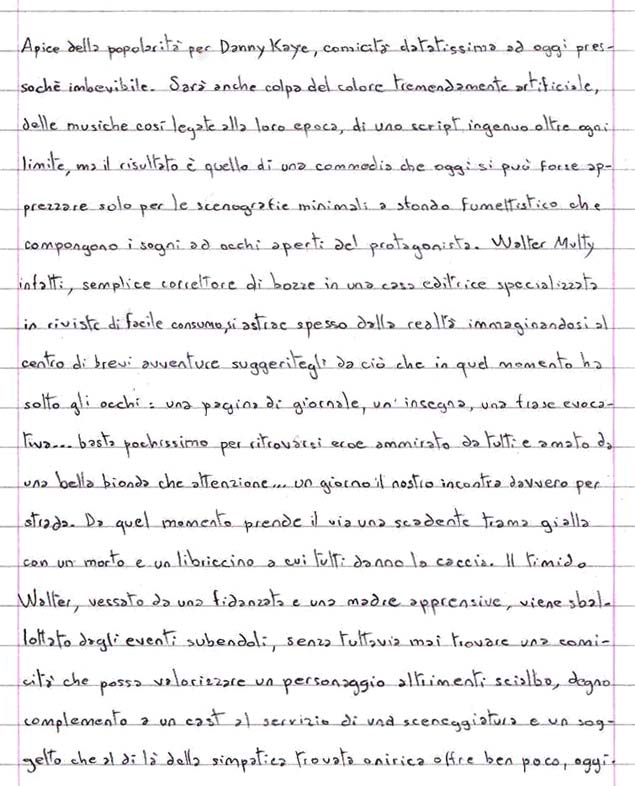 Apice della popolarità per Danny Kaye, comicità datatissima ad oggi pres-
sochè imbevibile. Sarà anche colpa del colore tremendamente artificiale,
delle musiche così legate alla loro epoca, di uno script ingenuo oltre ogni
limite, ma il risultato è quello di una commedia che oggi si può forse ap-
prezzare solo per le scenografie minimali a sfondo fumettistico che
compongono i sogni ad occhi aperti del protagonista. Walter Mutty
infatti, semplice correttore di bozze in una casa editrice specializzata
in riviste di facile consumo, si astrae spesso dalla realtà immaginandosi al
centro di brevi avventure suggeritegli da ciò che in quel momento ha
sotto gli occhi: una pagina di giornale, un'insegna, una frase evoca-
tiva... basta pochissimo per ritrovarsi eroe ammirato da tutti e amato da
una bella bionda che attenzione... un giorno il nostro incontra davvero per
strada. Da quel momento prende il via una scadente trama gialla
con un morto e un libriccino a cui tutti danno la caccia. Il timido
Walter, vessato da una fidanzata e una madre apprensive, viene sbal-
lottato dagli eventi subendoli, senza tuttavia mai trovare una comi-
cità che possa valorizzare un personaggio altrimenti scialbo, degno
complemento a un cast al servizio di una sceneggiatura e un sog-
getto che al di là della simpatica trovata onirica offre ben poco, oggi.